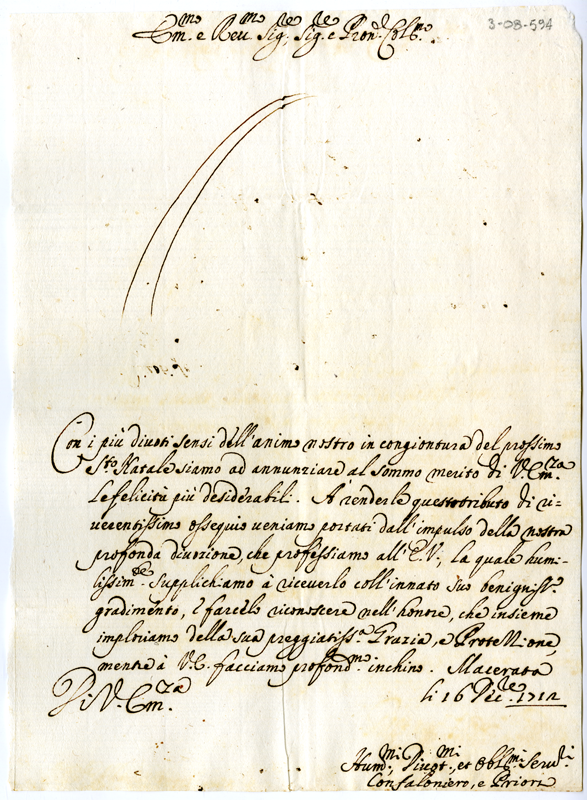 3-08-594
Em.mo e Rev.mo Sig.re Sig.re e Pron. Col.mo
Con i più divoti sensi dell'animo nostro in congiontura del prossimo
S.to Natale siamo ad annunziare al sommo merito di V. Em.za
le felicità più desiderabili. A renderle questo tributo di ri-
verentissimo ossequio veniamo portati dall'impulso della nostra
profonda divozione, che professiamo all'E.V., la quale humi-
lissim.te supplichiamo à riceverlo coll'innato suo benigniss.o
gradimento, e farcelo riconoscere nell'honore, che insieme
imploriamo della sua preggiatiss.a Grazia, e Protettione,
mentre à V.E. facciamo profond.mo inchino. Macerata
li 16 Dic.re
Di V. Em.za
Hum.mi Divot.mi et Obl.mi Serv.ri
Confaloniero, e Priori